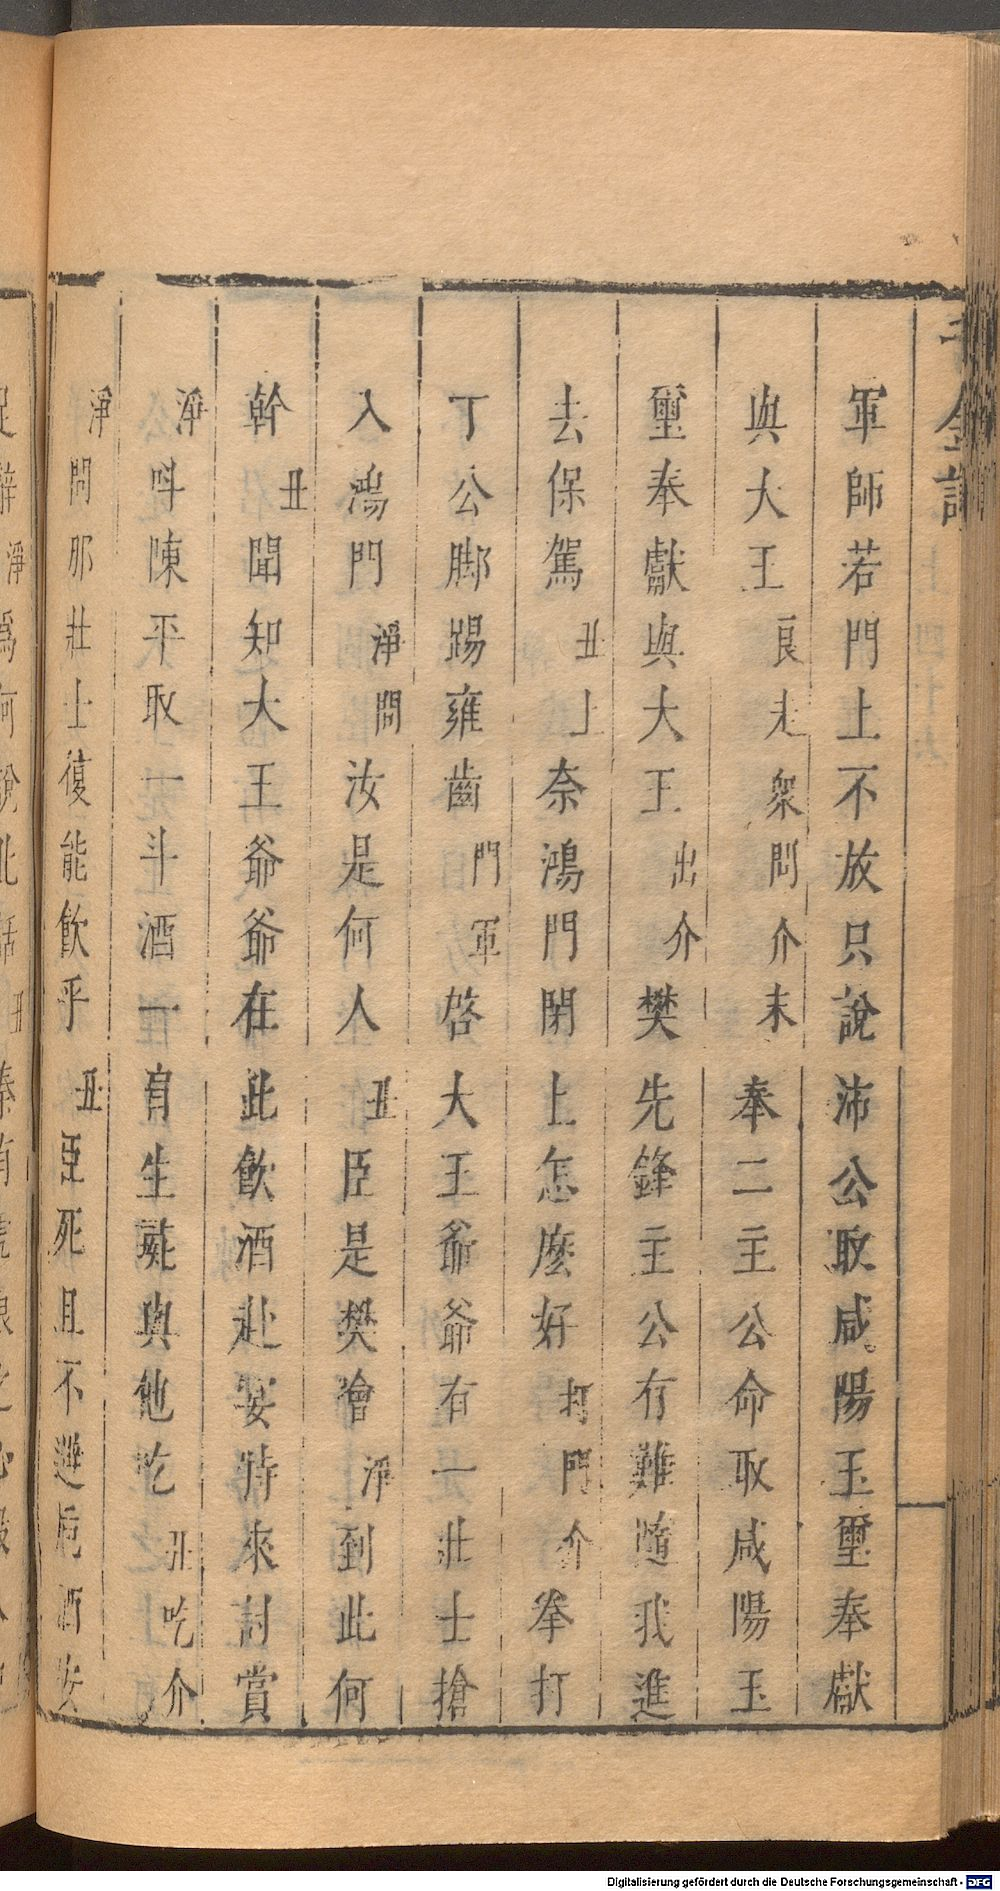 千金記
軍師若門上不放只說沛公取咸陽玉璽奉獻
與大王良走衆問介末奉二主公命取咸陽玉
璽奉獻與大王出介樊先鋒主公有難隨我進
去保駕丑上奈鴻門門閉上怎麽好打門介拳打
丁公脚踢雍齒門軍啓大王爺爺有一壯士搶
入鴻門淨問汝是何人丑臣是樊噲淨到此何
幹丑聞知大王爺爺在此飲酒赴宴特來討賞
淨呌陳平取一斗酒一肩生彘與他吃丑吃介
淨問那壯士復能飲乎丑臣死且不避巵酒安
淨爲何說此話丑秦有虎狼之心
Digitalisierung gefördert durch die Deutsche Forschungsgemeinschaft - DFG